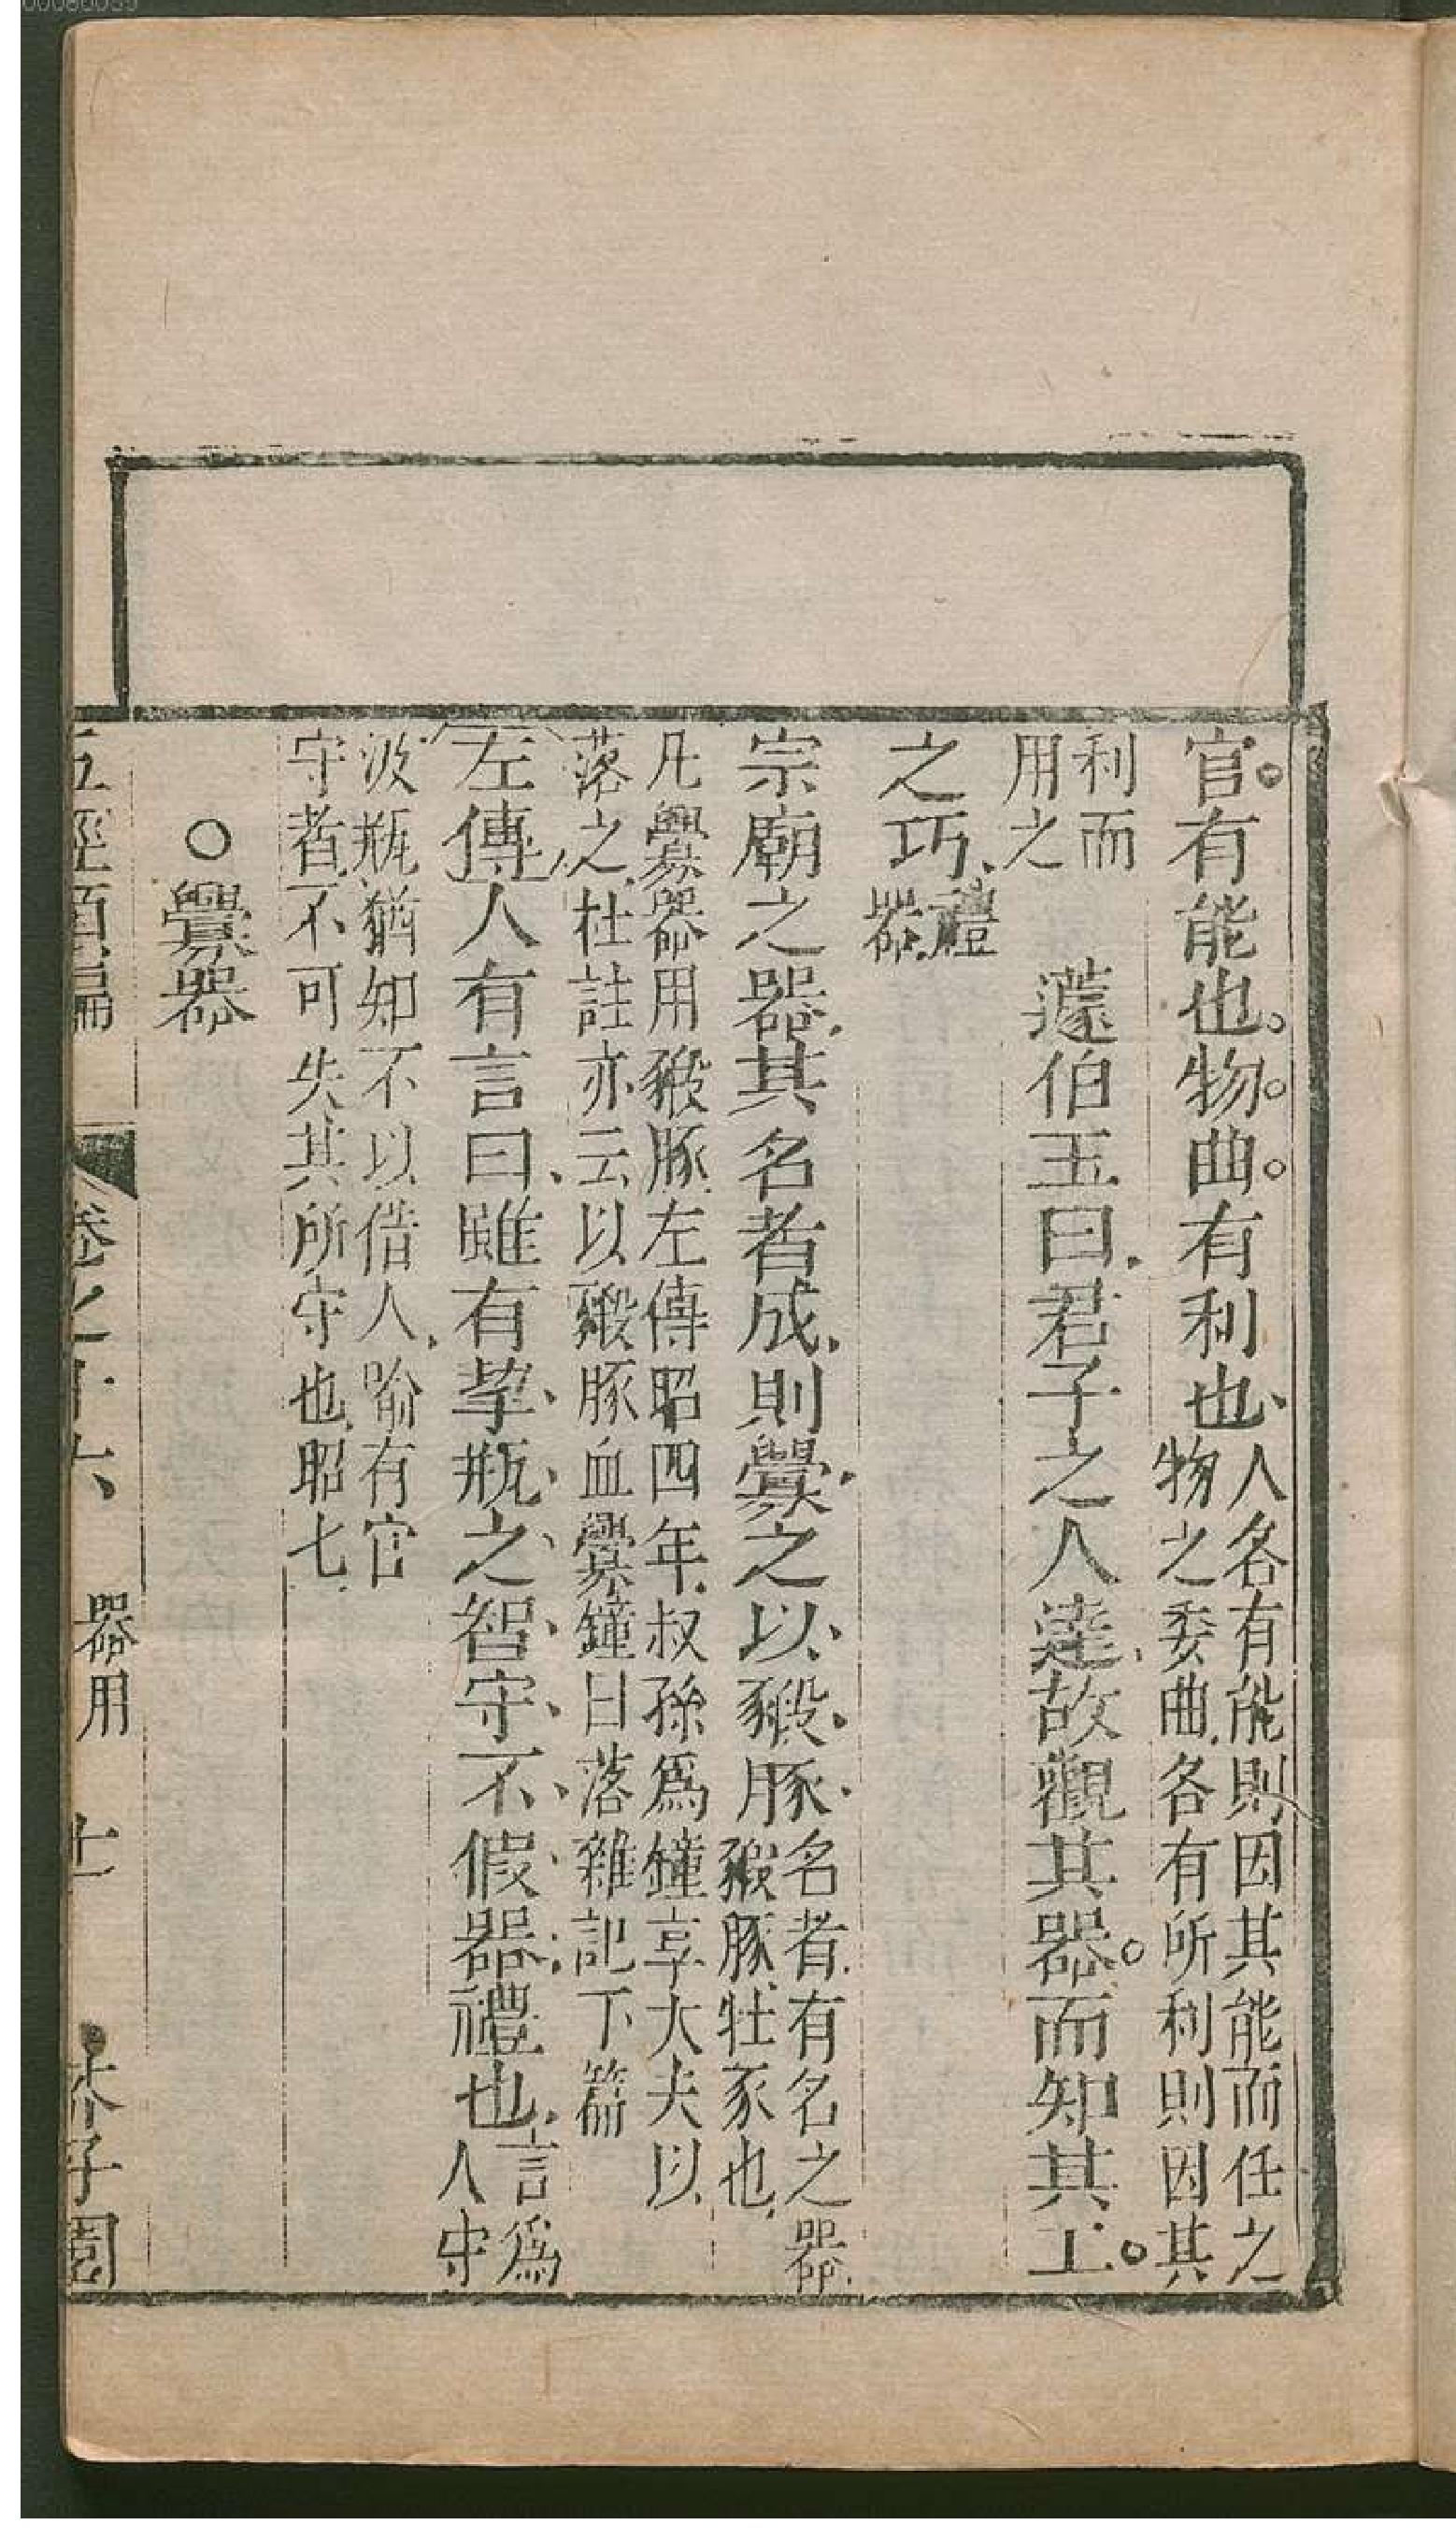 官。有能也。物。曲。有利也、人各有能則因其能而任之物之委曲各有所利則因其
利而用之　蘧伯玉曰君子之人達故觀其器。而知其工。
之巧、禮器
宗廟之器其名者成則釁之以豭豚名者有名之器豭豚牡豕也
凡釁器用豭豚左傳昭四年叔孫為鐘享大夫以落之杜註亦云以豭豚血釁鐘曰落雜記下篇
左傳人有言曰、雖有挈、瓶、之、智、守、不、假器禮也言為人守
汲瓶猶知不以借人喻有官守者不可失其所守也昭七
○釁器
五經類編　卷之十六　器用　十一　芥子園